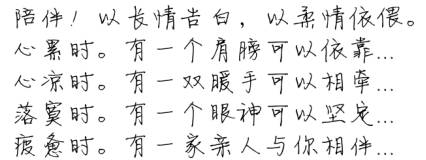 陪伴！以长情告白，以柔情依偎。
心累时。有一个肩膀可以依靠...
心凉时。有一双暖手可以相牵...
落寞时。有一个眼神可以坚定...
疲惫时。有一家亲人与你相伴...